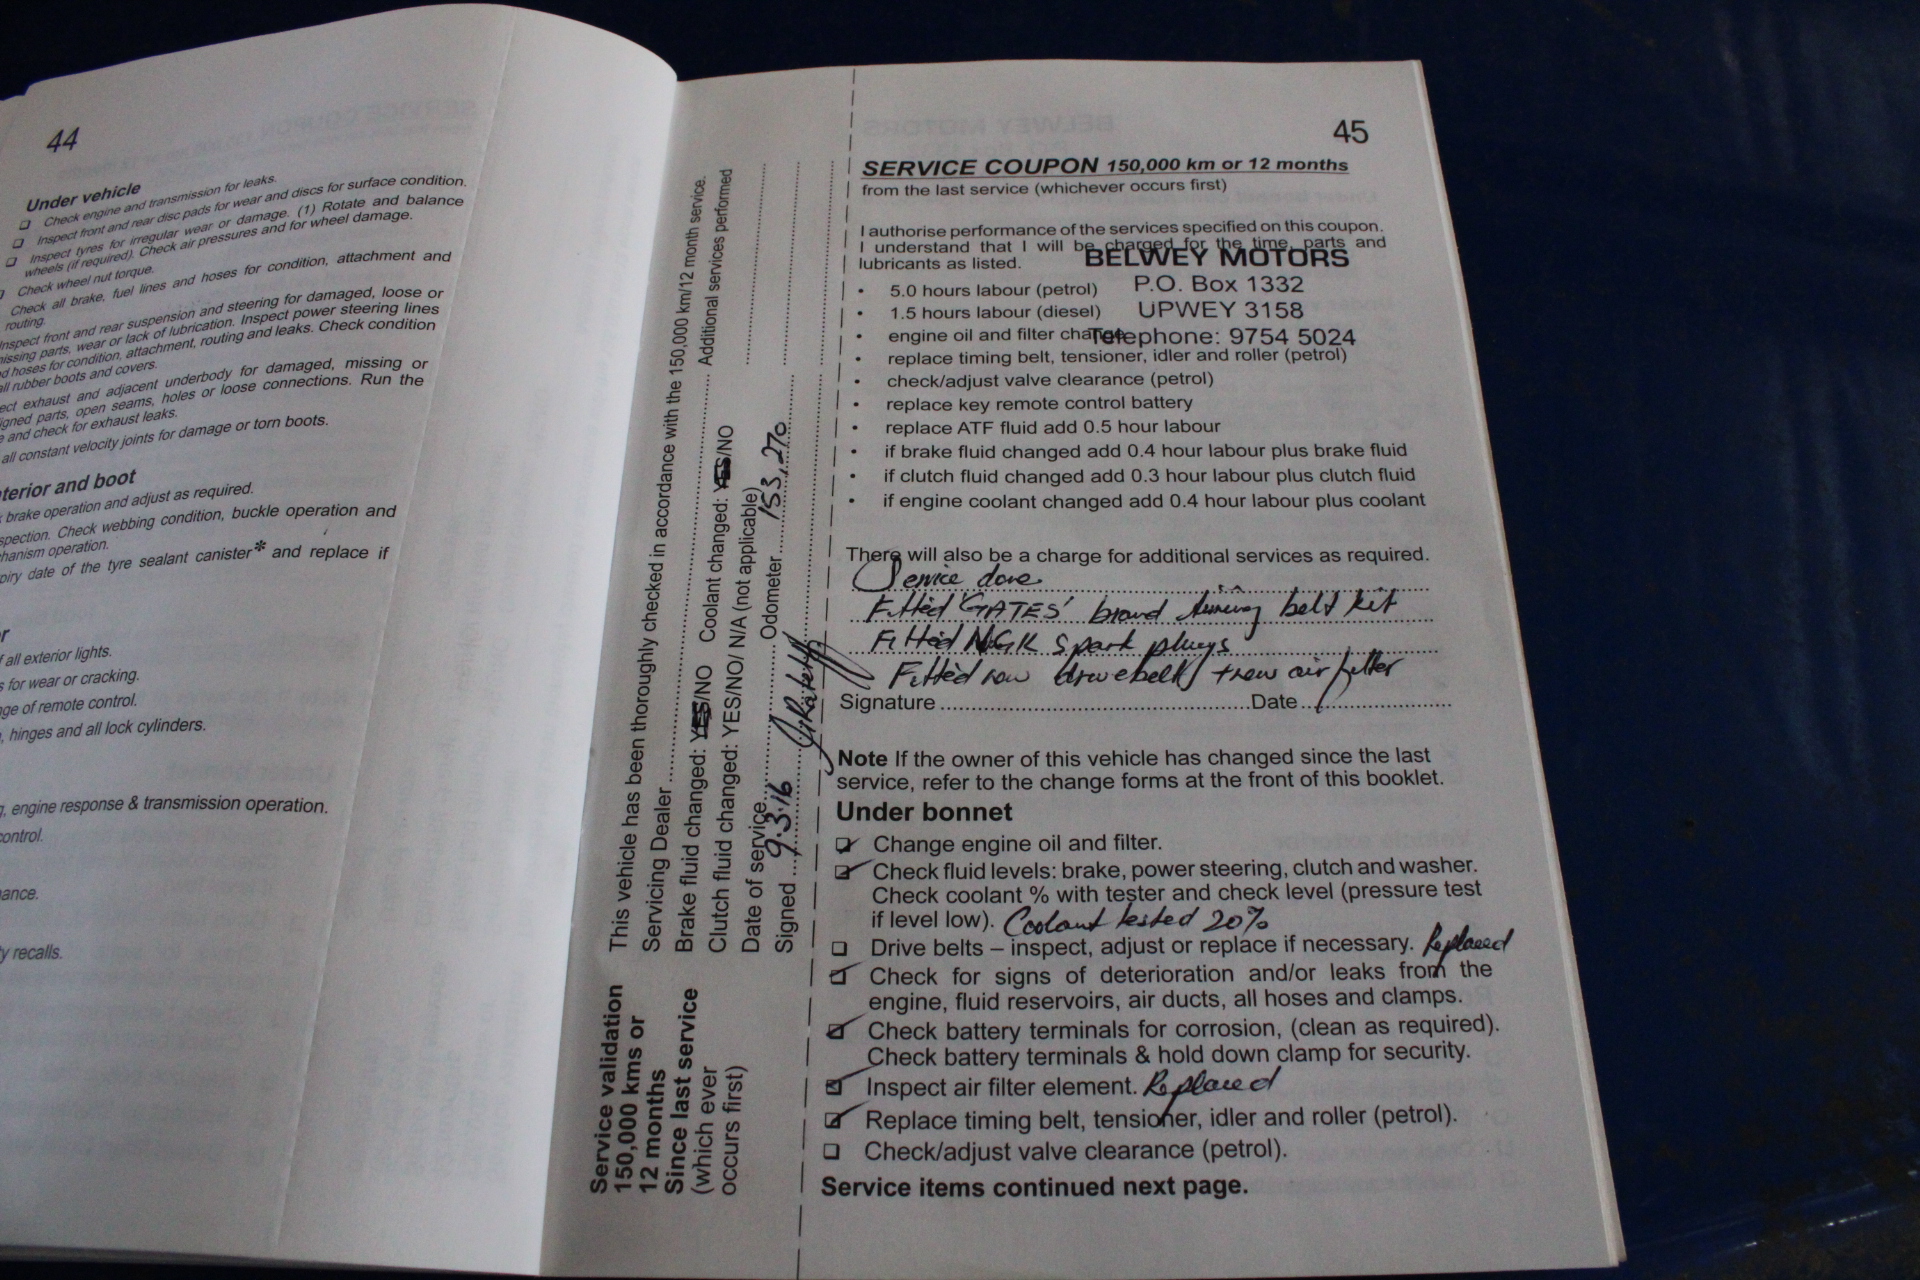 44
Under vehicle
❑ Check engine and transmission for leaks.
❑ Inspect front and rear disc pads for wear and discs for surface condition.
❑ Inspect tyres for irregular wear or damage. (1) Rotate and balance
wheels (if required). Check air pressures and for wheel damage.
Check wheel nut torque.
Check all brake, fuel lines and hoses for condition, attachment and
routing.
Inspect front and rear suspension and steering for damaged, loose or
missing parts, wear or lack of lubrication. Inspect power steering lines
hoses for condition, attachment, routing and leaks. Check condition
all rubber boots and covers.
exhaust and adjacent underbody for damaged, missing or
parts, open seams, holes or loose connections. Run the
and check for exhaust leaks.
all constant velocity joints for damage or torn boots.
and boot
brake operation and adjust as required.
Check webbing condition, buckle operation and
operation.
date of the tyre sealant canister* and replace if
all exterior lights.
for wear or cracking.
of remote control.
hinges and all lock cylinders.
engine response & transmission operation.
control.
recalls.
Service validation
150,000 kms or
12 months
Since last service
(which ever
occurs first)
This vehicle has been thoroughly checked in accordance with the 150,000 km/12 month service.
Servicing Dealer Additional services performed
Brake fluid changed: YES/NO Coolant changed: YES/NO
Clutch fluid changed: YES/NO/ N/A (not applicable)
Date of service 9.3.16 Odometer 153,270
Signed
45
SERVICE COUPON 150,000 km or 12 months
from the last service (whichever occurs first)
I authorise performance of the services specified on this coupon.
I understand that I will be charged for the time, parts and
lubricants as listed.
BELWEY MOTORS
P.O. Box 1332
UPWEY 3158
Telephone: 9754 5024
• 5.0 hours labour (petrol)
• 1.5 hours labour (diesel)
• engine oil and filter change
• replace timing belt, tensioner, idler and roller (petrol)
• check/adjust valve clearance (petrol)
• replace key remote control battery
• replace ATF fluid add 0.5 hour labour
• if brake fluid changed add 0.4 hour labour plus brake fluid
• if clutch fluid changed add 0.3 hour labour plus clutch fluid
• if engine coolant changed add 0.4 hour labour plus coolant
There will also be a charge for additional services as required.
Service done
Fitted 'GATES' brand timing belt kit
Fitted NGK spark plugs
Fitted new drivebelts + new air filter
Signature Date
Note If the owner of this vehicle has changed since the last
service, refer to the change forms at the front of this booklet.
Under bonnet
❑ Change engine oil and filter.
❑ Check fluid levels: brake, power steering, clutch and washer.
Check coolant % with tester and check level (pressure test
if level low). Coolant tested 20%
❑ Drive belts – inspect, adjust or replace if necessary. Replaced
❑ Check for signs of deterioration and/or leaks from the
engine, fluid reservoirs, air ducts, all hoses and clamps.
❑ Check battery terminals for corrosion, (clean as required).
Check battery terminals & hold down clamp for security.
❑ Inspect air filter element. Replaced
❑ Replace timing belt, tensioner, idler and roller (petrol).
❑ Check/adjust valve clearance (petrol).
Service items continued next page.